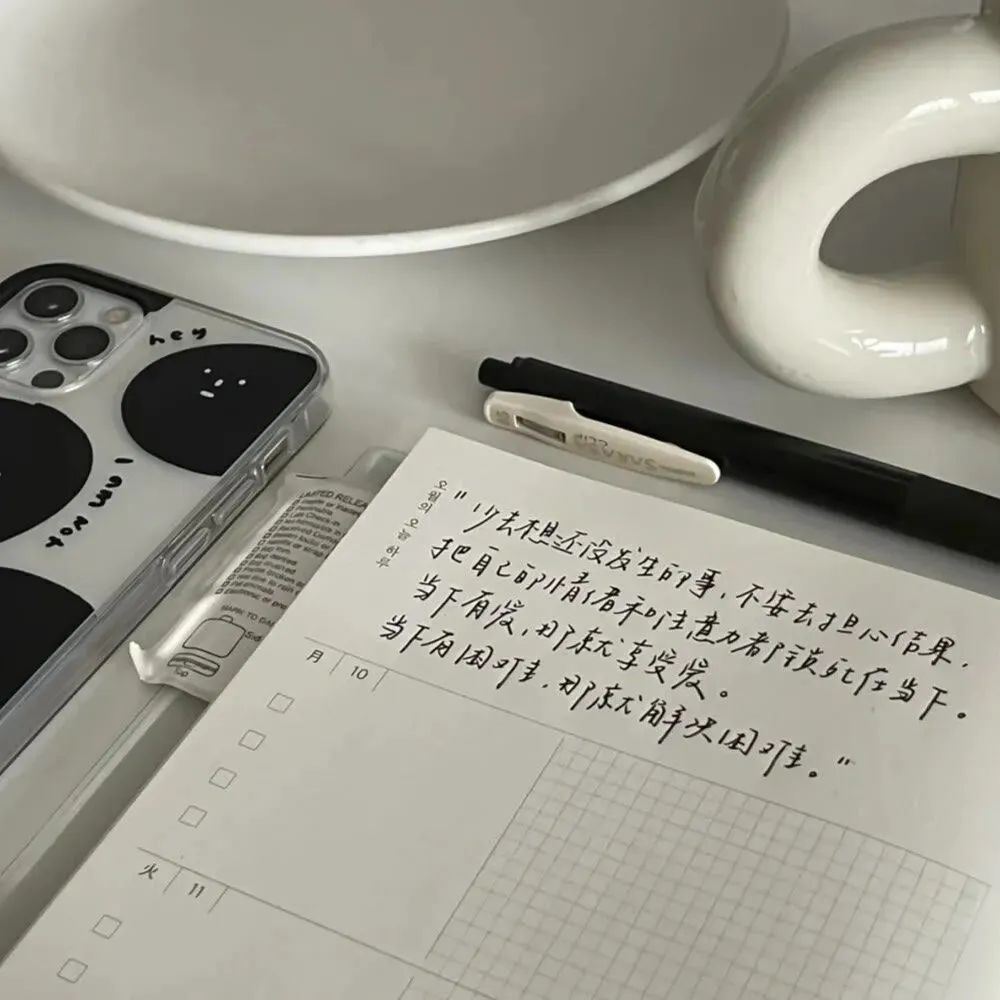 hey
I am
You
SARASA CLIP
LIMITED RELEA
오월의 오늘 하루
"少去想还没发生的事,不要去担心结果,
把自己的情绪和注意力都锁死在当下。
当下有爱,那就享受爱。
当下有困难,那就解决困难。"
月 10
火 11